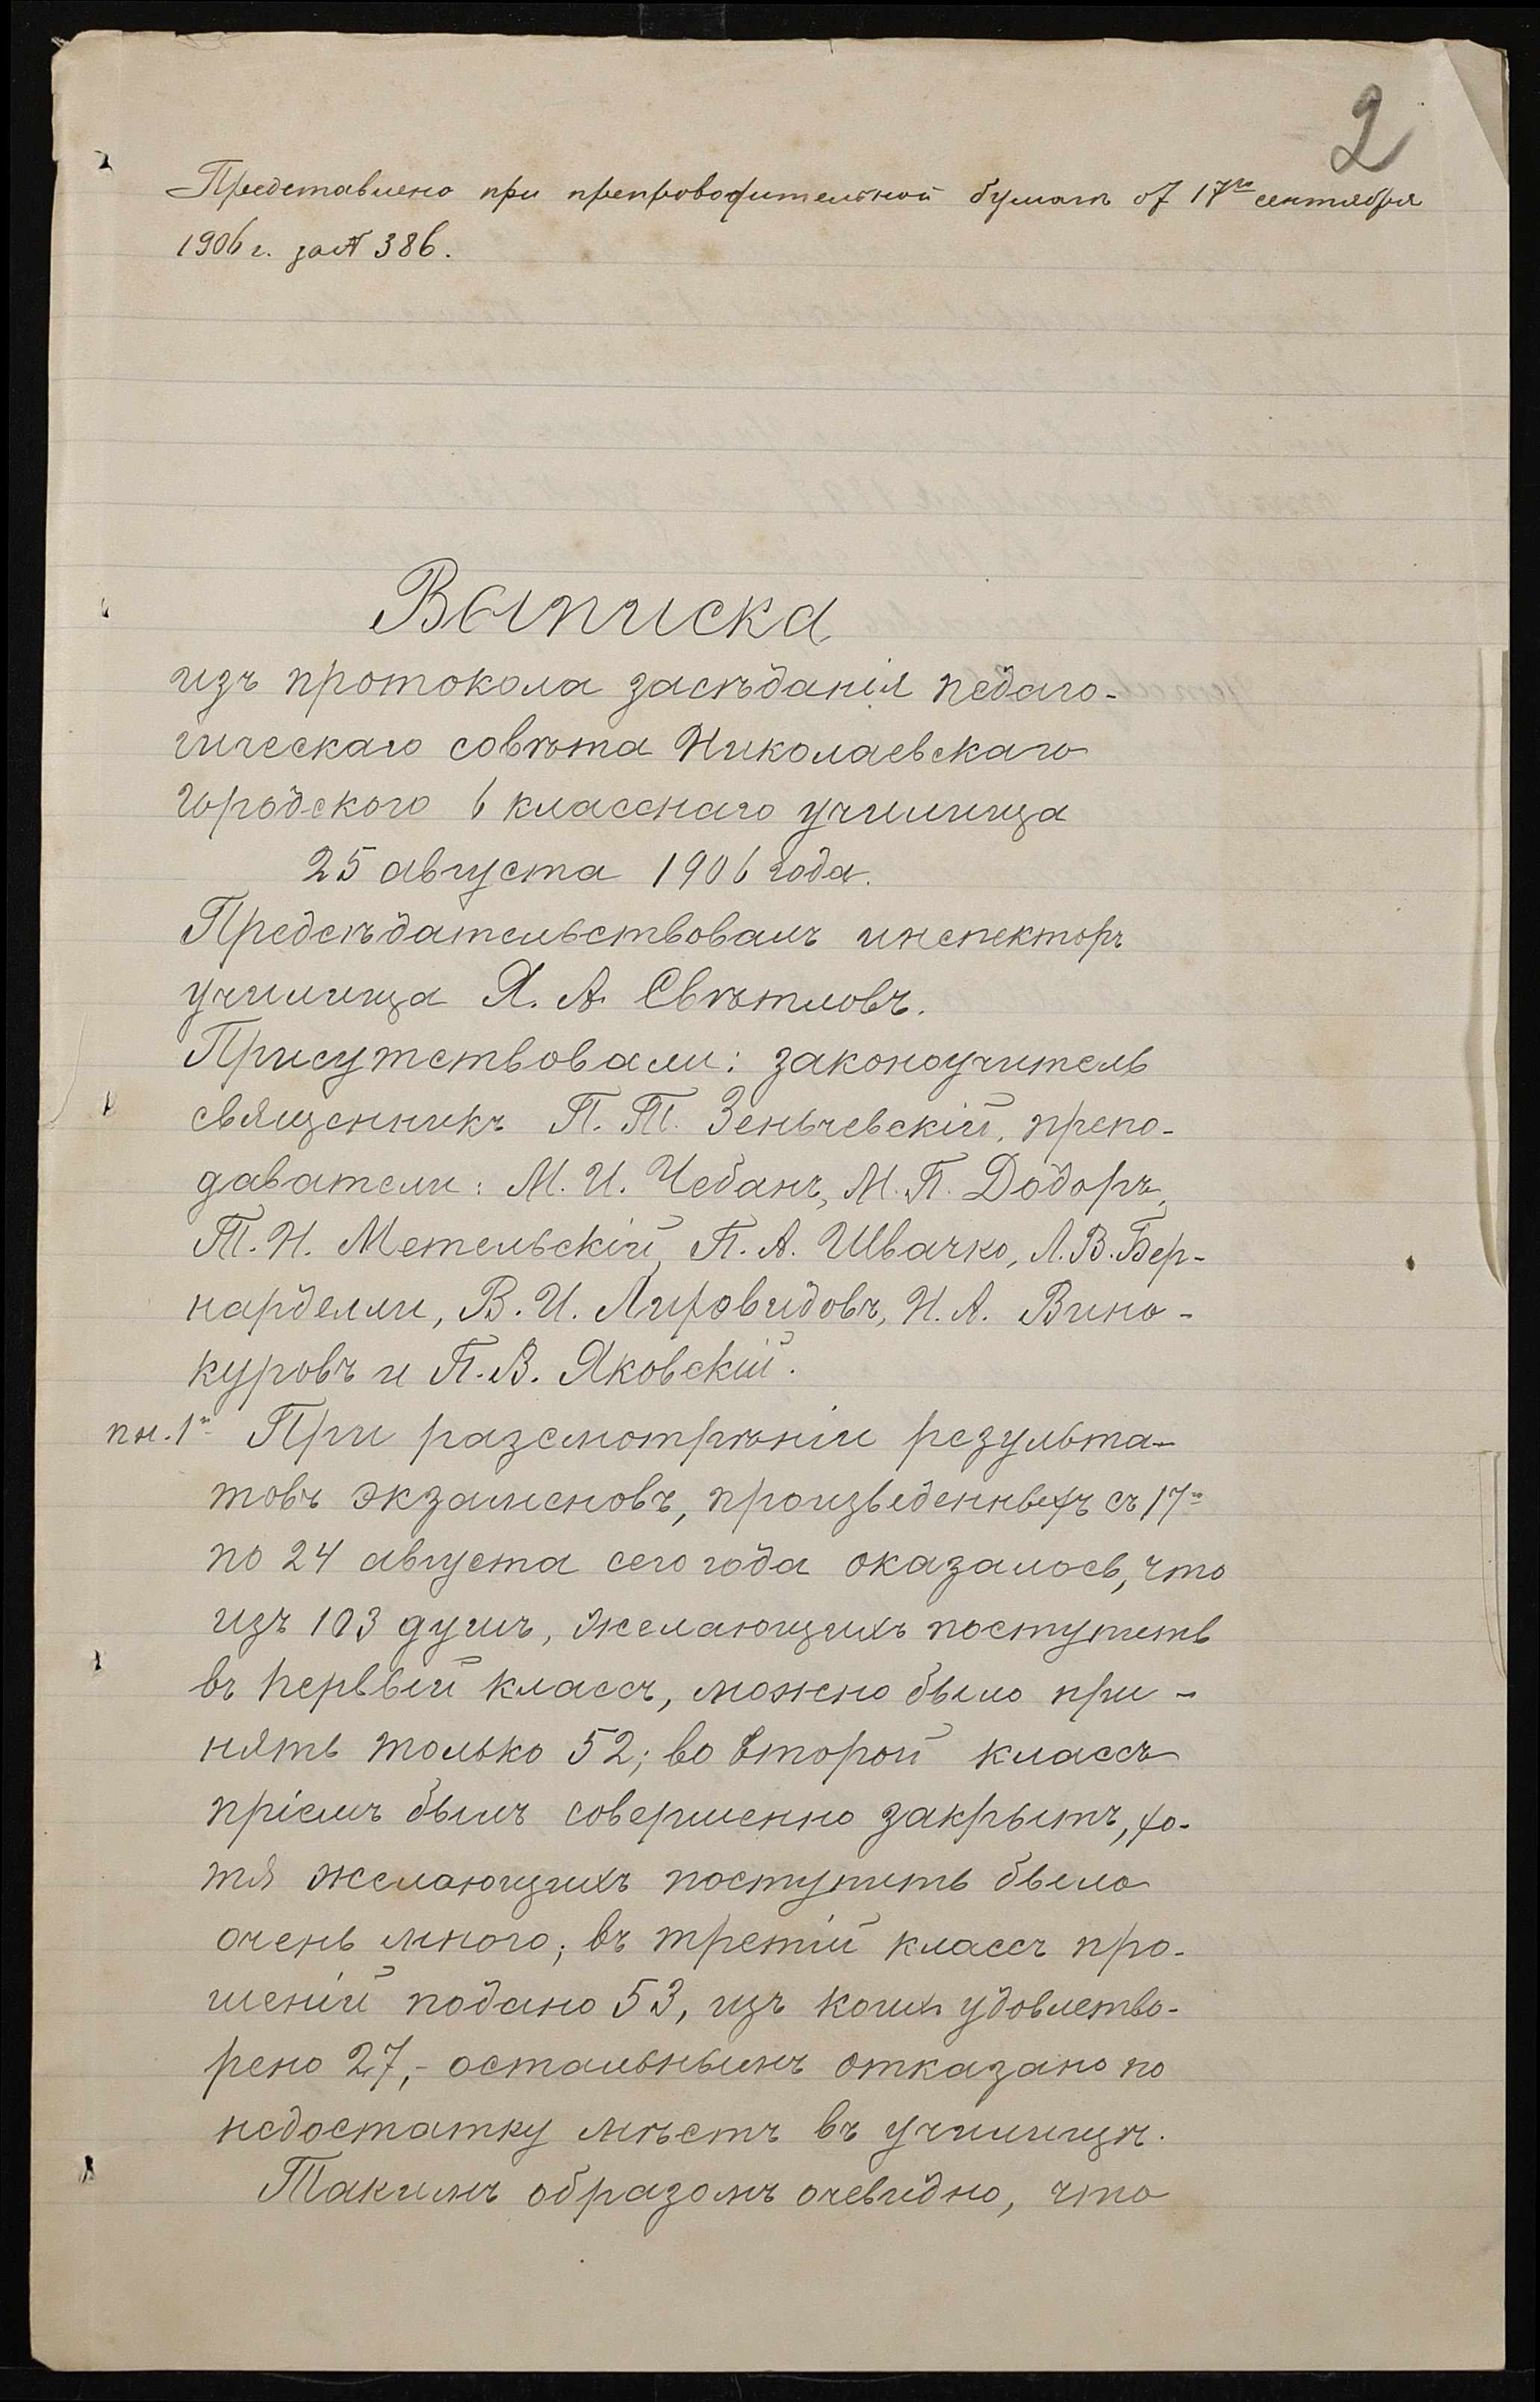 2
Представлено при препроводительной бумагѣ от 17го сентября
1906 г. за № 386.
Выписка
изъ протокола засѣданія педаго-
гическаго совѣта Николаевскаго
городского 6 класснаго училища
25 августа 1906 года.
Предсѣдательствовалъ инспекторъ
училища Я. А. Свѣтловъ.
Присутствовали: законоучитель
священникъ П. Т. Зеньчевскій, препо-
даватели: М. И. Чебанъ, М. П. Додоръ,
Т. Н. Метельскій, П. А. Швачко, Л. В. Бер-
нарделли, В. И. Лировидовъ, Н. А. Вино-
куровъ и П. В. Яковскій.
При разсмотрѣніи результа-
товъ экзаменовъ, произведенныхъ съ 17го
по 24 августа сего года оказалось, что
изъ 103 душъ, желающихъ поступить
въ первый классъ, можно было при-
нять только 52; во второй классъ
пріемъ былъ совершенно закрытъ, хо-
тя желающихъ поступить было
очень много; въ третій классъ про-
шеній подано 53, изъ коихъ удовлетво-
рено 27,- остальнымъ отказано по
недостатку мѣстъ въ училищѣ.
Такимъ образомъ очевидно, что